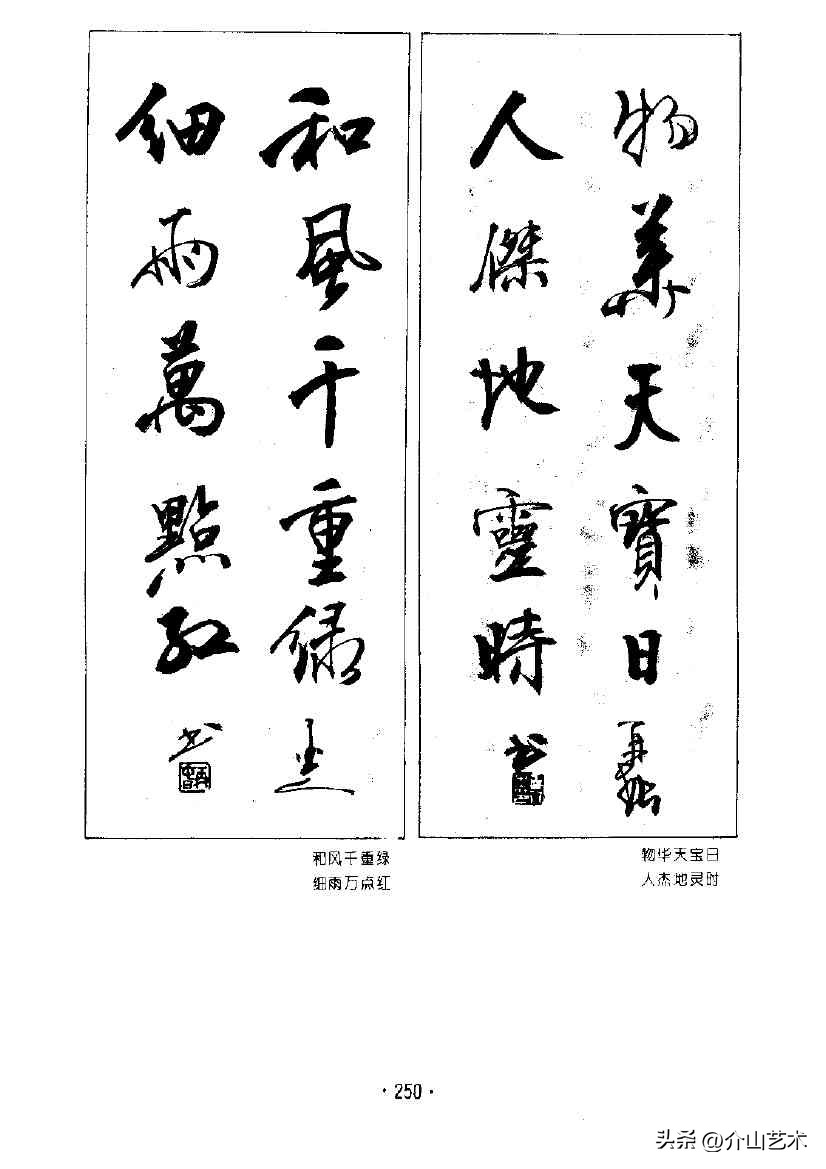 物華天寶日
人傑地靈時書
和風千重綠
細雨萬點紅書
物华天宝日
人杰地灵时
和风千重绿
细雨万点红
·250·
头条 @介山艺术